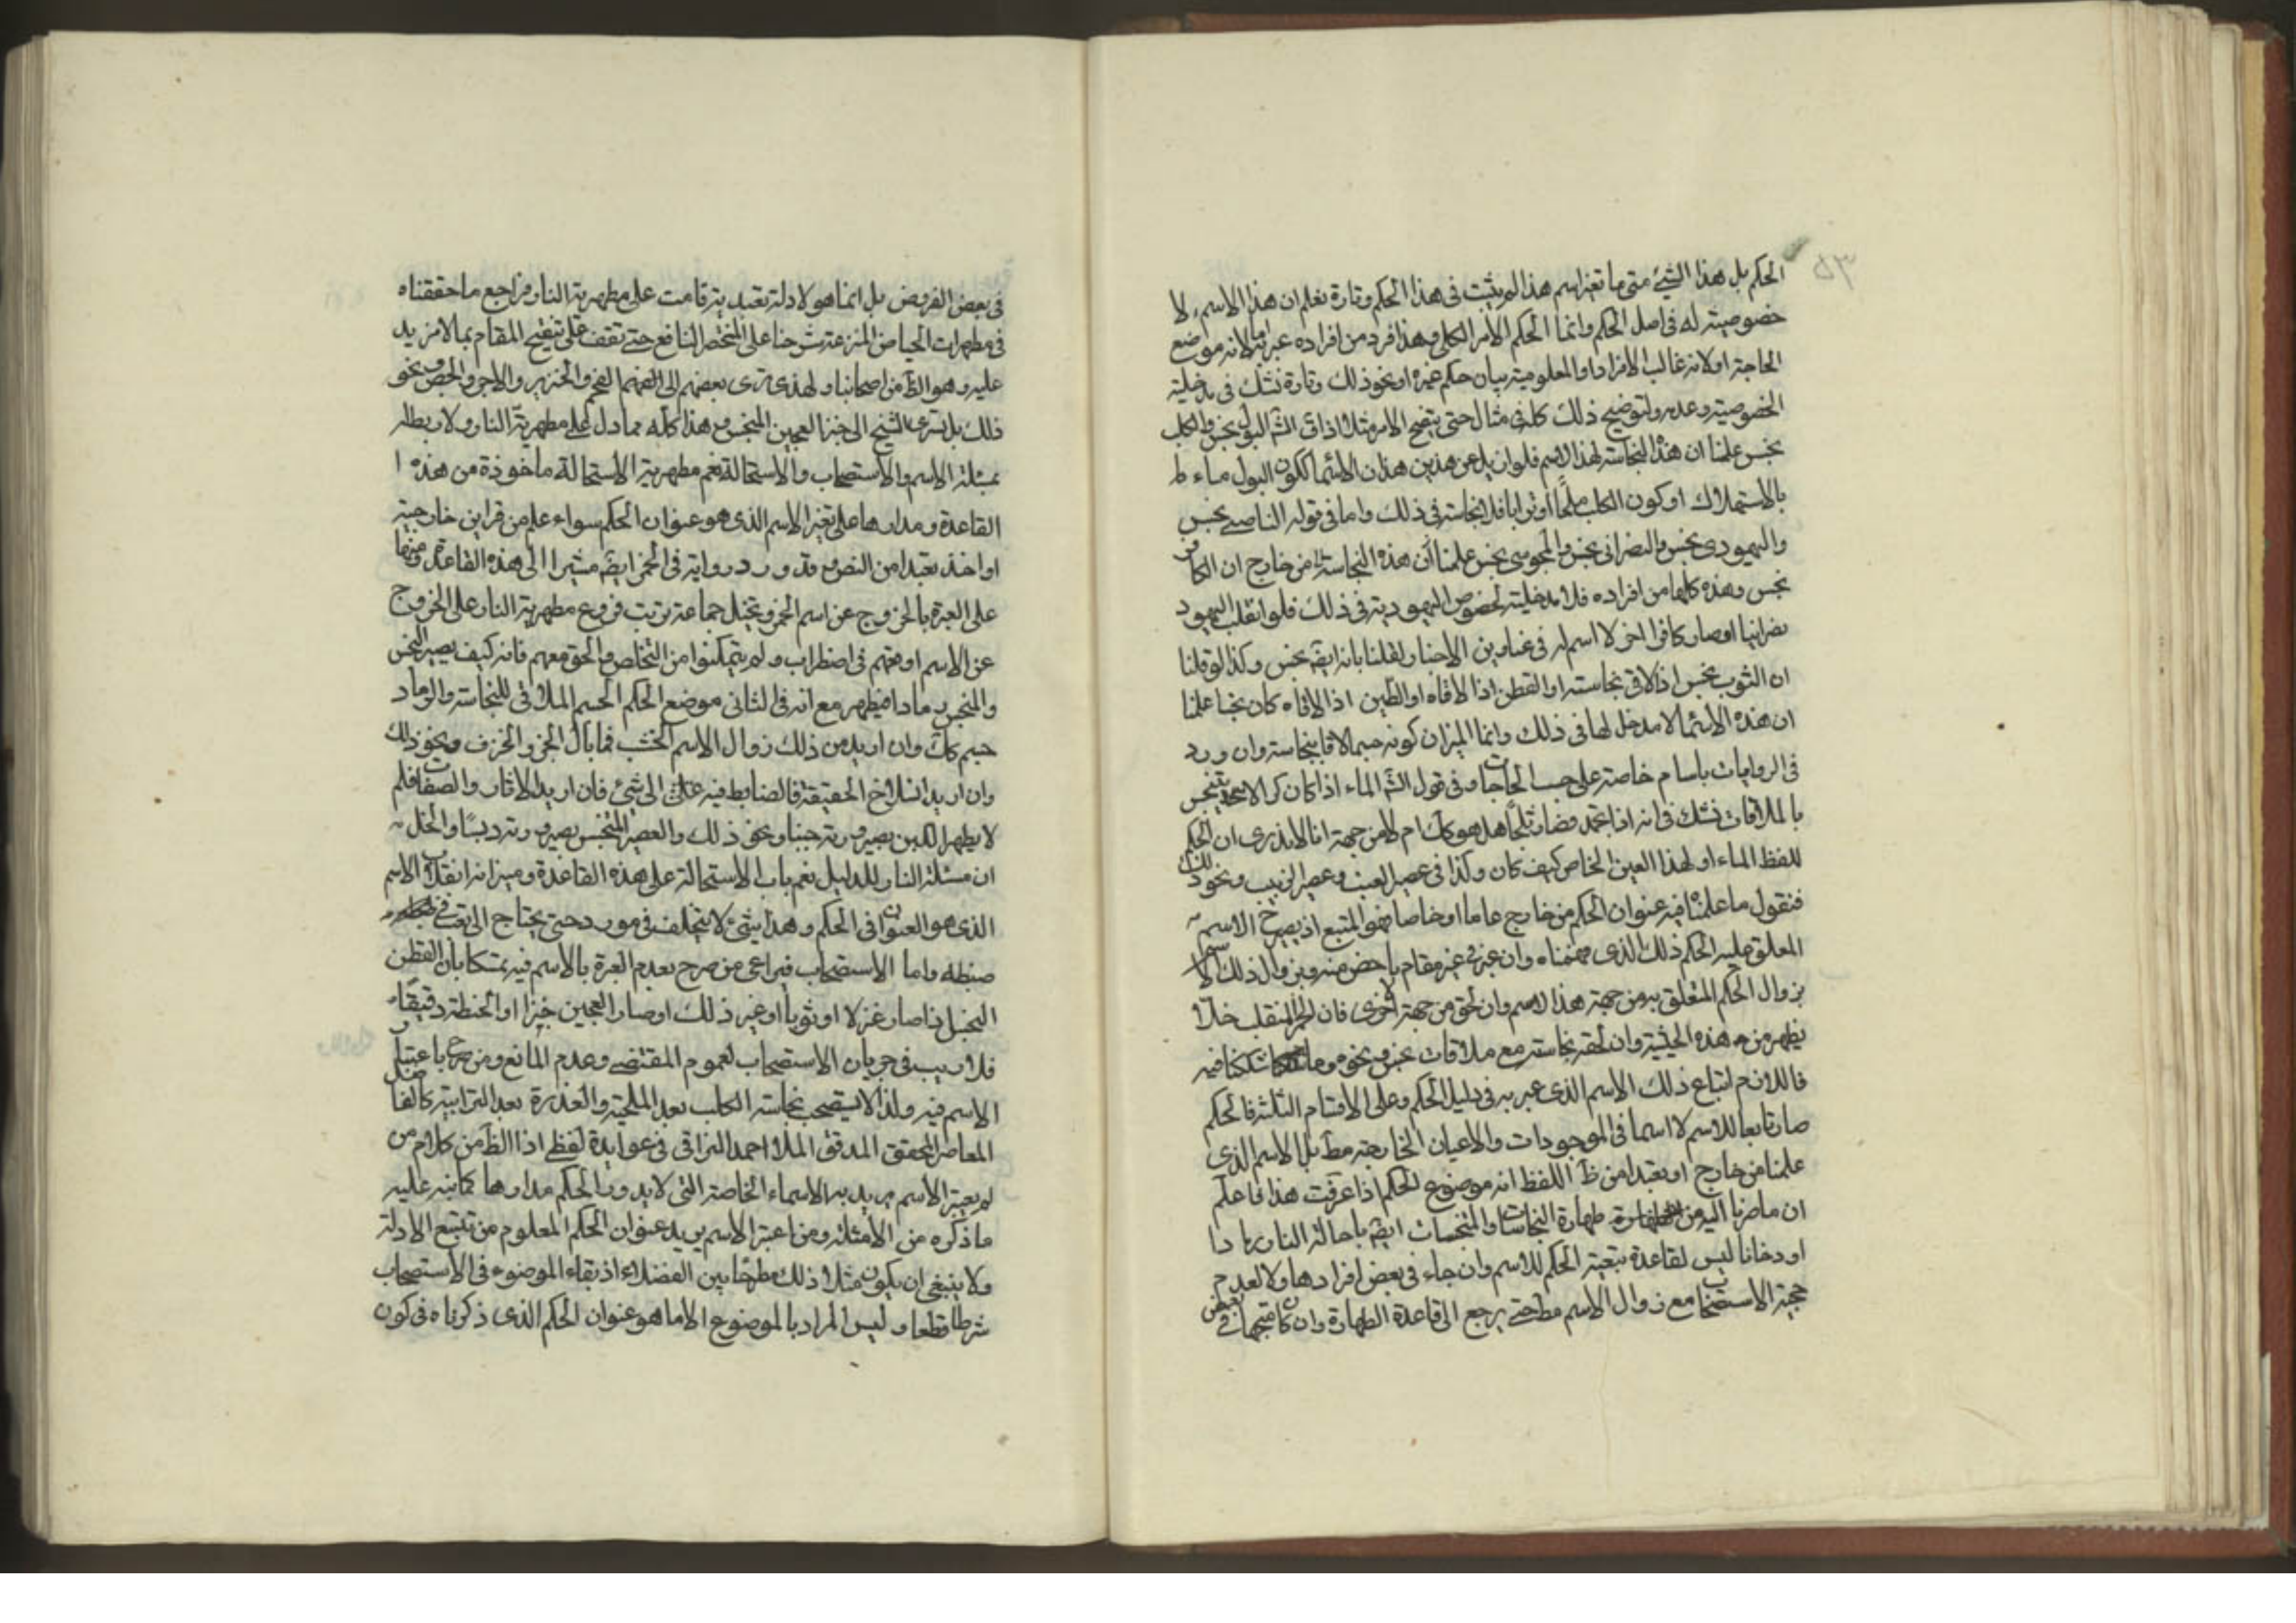 ٥٣
الحكم بل هذا الشيئ متى ما تغير اسم هذا لم يثبت فى هذا الحكم وتارة نعلم ان هذا الاسم لا
خصوصية له فى اصل الحكم وانما الحكم الأمر الكلى وهذا فرد من افراده عبر به اما لانه موضع
الحاجة او لانه غالب الافراد او المعلومية بيان حكم غيره او نحو ذلك وتارة نشك فى مدخلية
الخصوصية وعدمه ولتوضيح ذلك كله فى مثال حتى يتضح الامر مثلا اذا ق الش البول نجس والكلب
نجس علمنا ان هذه النجاسة لهذا الاسم فلو ان بدل عن هذين هذان الاسمان ككون البول ماء
بالاستهلاك او كون الكلب ملحا او ترابا فلا نجاسة فى ذلك واما فى قوله الناصبى نجس
واليهودى نجس والنصرانى نجس والمجوسى نجس علمنا أن هذه النجاسة من خارج ان الكافر
نجس وهذه كلها من افراده فلا مدخلية لخصوص اليهودية فى ذلك فلو انقلب اليهود
نصرانيا او صار كافرا اخر لا اسم له فى عناوين الاخبار لقلنا بانه ايضه نجس وكذا لو قلنا
ان الثوب نجس اذا لاقى نجاسته او القطن اذا لاقاه او الطين اذا لاقاه كان نجسا علمنا
ان هذه الاسما لا مدخل لها فى ذلك وانما الميزان كونه جسما لاقا بنجاسة وان ورد
فى الروايات باسام خاصة على حسب الحاجات وفى قول الش الماء اذا كان كر الا يتنجس
بالملاقات نشك فى انه اذا تجمد فصار ثلجا هل هو كك ام لا من جهة انا لا ندرى ان الحكم
للفظ الماء او لهذا العين الخاص كيف كان وكذا فى عصير العنب وعصير الزبيب ونحو ذلك
فنقول ما علمنا فيه عنوان الحكم من خارج عاما او خاصا فهو المتبع اذ يصرح الاسم
المعلق عليه الحكم ذلك الذى فهمناه وان عبر فى غير مقام باخص منه وبزوال ذلك الاسم
بزوال الحكم المتعلق به من جهة هذا الاسم وان لحق من جهة اخرى فان الخمر المنقلب خلا
يطهر من هذه الحيثية وان لحقه نجاسته مع ملاقات نجس ونحوه وما شككنا فيه
فاللازم اتباع ذلك الاسم الذى عبر به فى دليل الحكم وعلى الاقسام الثلثة فالحكم
صار تابعا للاسم لا اسما فى الموجودات والاعيان الخارجة مط بل الاسم الذى
علمنا من خارج او تعبدا من ظ اللفظ انه موضوع الحكم اذا عرفت هذا فاعلم
ان ما صرنا اليه من طهارة النجاسات والمتنجسات ايضه باحالة النار رمادا
او دخانا ليس لقاعدة تبعية الحكم للاسم وان جاء فى بعض افرادها ولا لعدم
حجية الاستصحاب مع زوال الاسم مط حتى يرجع الى قاعدة الطهارة وان كان متجها فى بعض
فى بعض الفروض بل انما هو لادلة تعبدية قامت على مطهرية النار فراجع ما حققناه
فى مطهرات الحياض المترعة شرحنا على المختصر النافع حتى تقف على تنقيح المقام بما لا مزيد
عليه وهو الظ من اصحابنا ولهذى ترى بعضهم الى الفهم الفحم والخنزير والاجر والجص ونحو
ذلك بل تسرى الشيخ الى خبز العجين المنجس وهذا كله مما دل على مطهرية النار ولا ربط له
بمسئلة الاسم والاستصحاب والاستحالة نعم مطهرية الاستحالة ماخوذة من هذه ا
القاعدة ومدارها على تغير الاسم الذى هو عنوان الحكم سواء علم من قراين خارجية
او اخذ تعبدا من النص وقد ورد رواية فى الخمر ايضه مشيرا الى هذه القاعدة ومنها
على العبرة بالخروج عن اسم الخمر وتخيل جماعة ترتب فروع مطهرية النار على الخروج
عن الاسم اوقعهم فى اضطراب ولم يتمكنوا من التخلص والحق معهم فانه كيف يصير النجس
والمنجس رمادا فيطهر مع انه فى الثانى موضع الحكم الجسم الملاقى للنجاسة والرماد
جسم كك وان اريد من ذلك زوال الاسم الخشب فما بال الجز والخزف ونحو ذلك
وان اريد انسلاخ الحقيقة فالضابط فيه على اى شيئ فان اريد الاثار والصفات فلم
لا يطهر اللبن بصيرورته جبنا ونحو ذلك والعصير المتنجس بصيرورته دبسا والخل
ان مسئلة النار للدليل نعم باب الاستحالة على هذه القاعدة وميزانه انقلاب الاسم
الذى هو العنوان فى الحكم وهذا شيئ لا يتخلف فى مورد حتى يحتاج الى تعب فى
ضبطه واما الاستصحاب فيراعى من صرح بعدم العبرة بالاسم فيه تمسكا بان القطن
النجس اذا صار غزلا او ثوبا او غير ذلك او صار العجين خبزا او الحنطة دقيقا
فلا ريب فى جريان الاستصحاب لعموم المقتضى وعدم المانع ومن صرح باعتبار
الاسم فيه ولذا لا يستصحب نجاسة الكلب بعد الملحية والعذرة بعد الترابية كالفاضل
المعاصر المحقق المدقق الملا احمد النراقى فى عوايده لفظى اذ الظ من كلام من
لم يعتبر الاسم يريد به الاسماء الخاصة التى لا يدور الحكم مدارها كما نبه عليه
ما ذكره من الأمثلة ومن اعتبر الاسم يريد عنوان الحكم المعلوم من تتبع الادلة
ولا ينبغى ان يكون مثل ذلك مطرحا بين الفضلاء اذ بقاء الموضوع فى الاستصحاب
شرط قطعا وليس المراد بالموضوع الا ما هو عنوان الحكم الذى ذكرناه فى كون